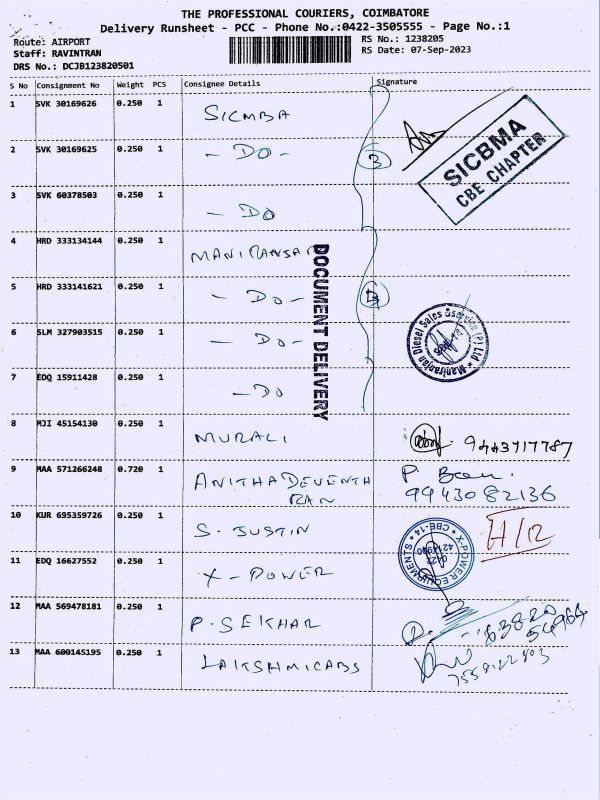 THE PROFESSIONAL COURIERS, COIMBATORE
Delivery Runsheet - PCC - Phone No.:0422-3505555 - Page No.:1
Route: AIRPORT
RS No.: 1238205
Staff: RAVINTRAN
RS Date: 07-Sep-2023
DRS No.: DCJB123820501
S No Consignment No Weight PCS Consignee Details Signature
1 SVK 30169626 0.250 1 SICMBA
SICBMA
CBE CHAPTER
2 SVK 30169625 0.250 1 - DO - 3
3 SVK 60378503 0.250 1 - DO
4 HRD 333134144 0.250 1
DOCUMENT DELIVERY
5 HRD 333141621 0.250 1 - DO -
6 SLM 327903515 0.250 1 - DO -
Maniranjan Diesel Sales &service (P) Ltd
7 EDQ 15911428 0.250 1 - DO
8 MJI 45154130 0.250 1 MURALI 9443717787
9 MAA 571266248 0.720 1 ANITHA DEVENTH
RAN
9943082136
10 KUR 695359726 0.250 1 S. JUSTIN H/12
X-POWER EQUIPMENTS CBE-14
0422
4214940
11 EDQ 16627552 0.250 1 X-POWER
12 MAA 569478181 0.250 1 P. SEKHAR
13 MAA 600145195 0.250 1 LAKSHMICABS